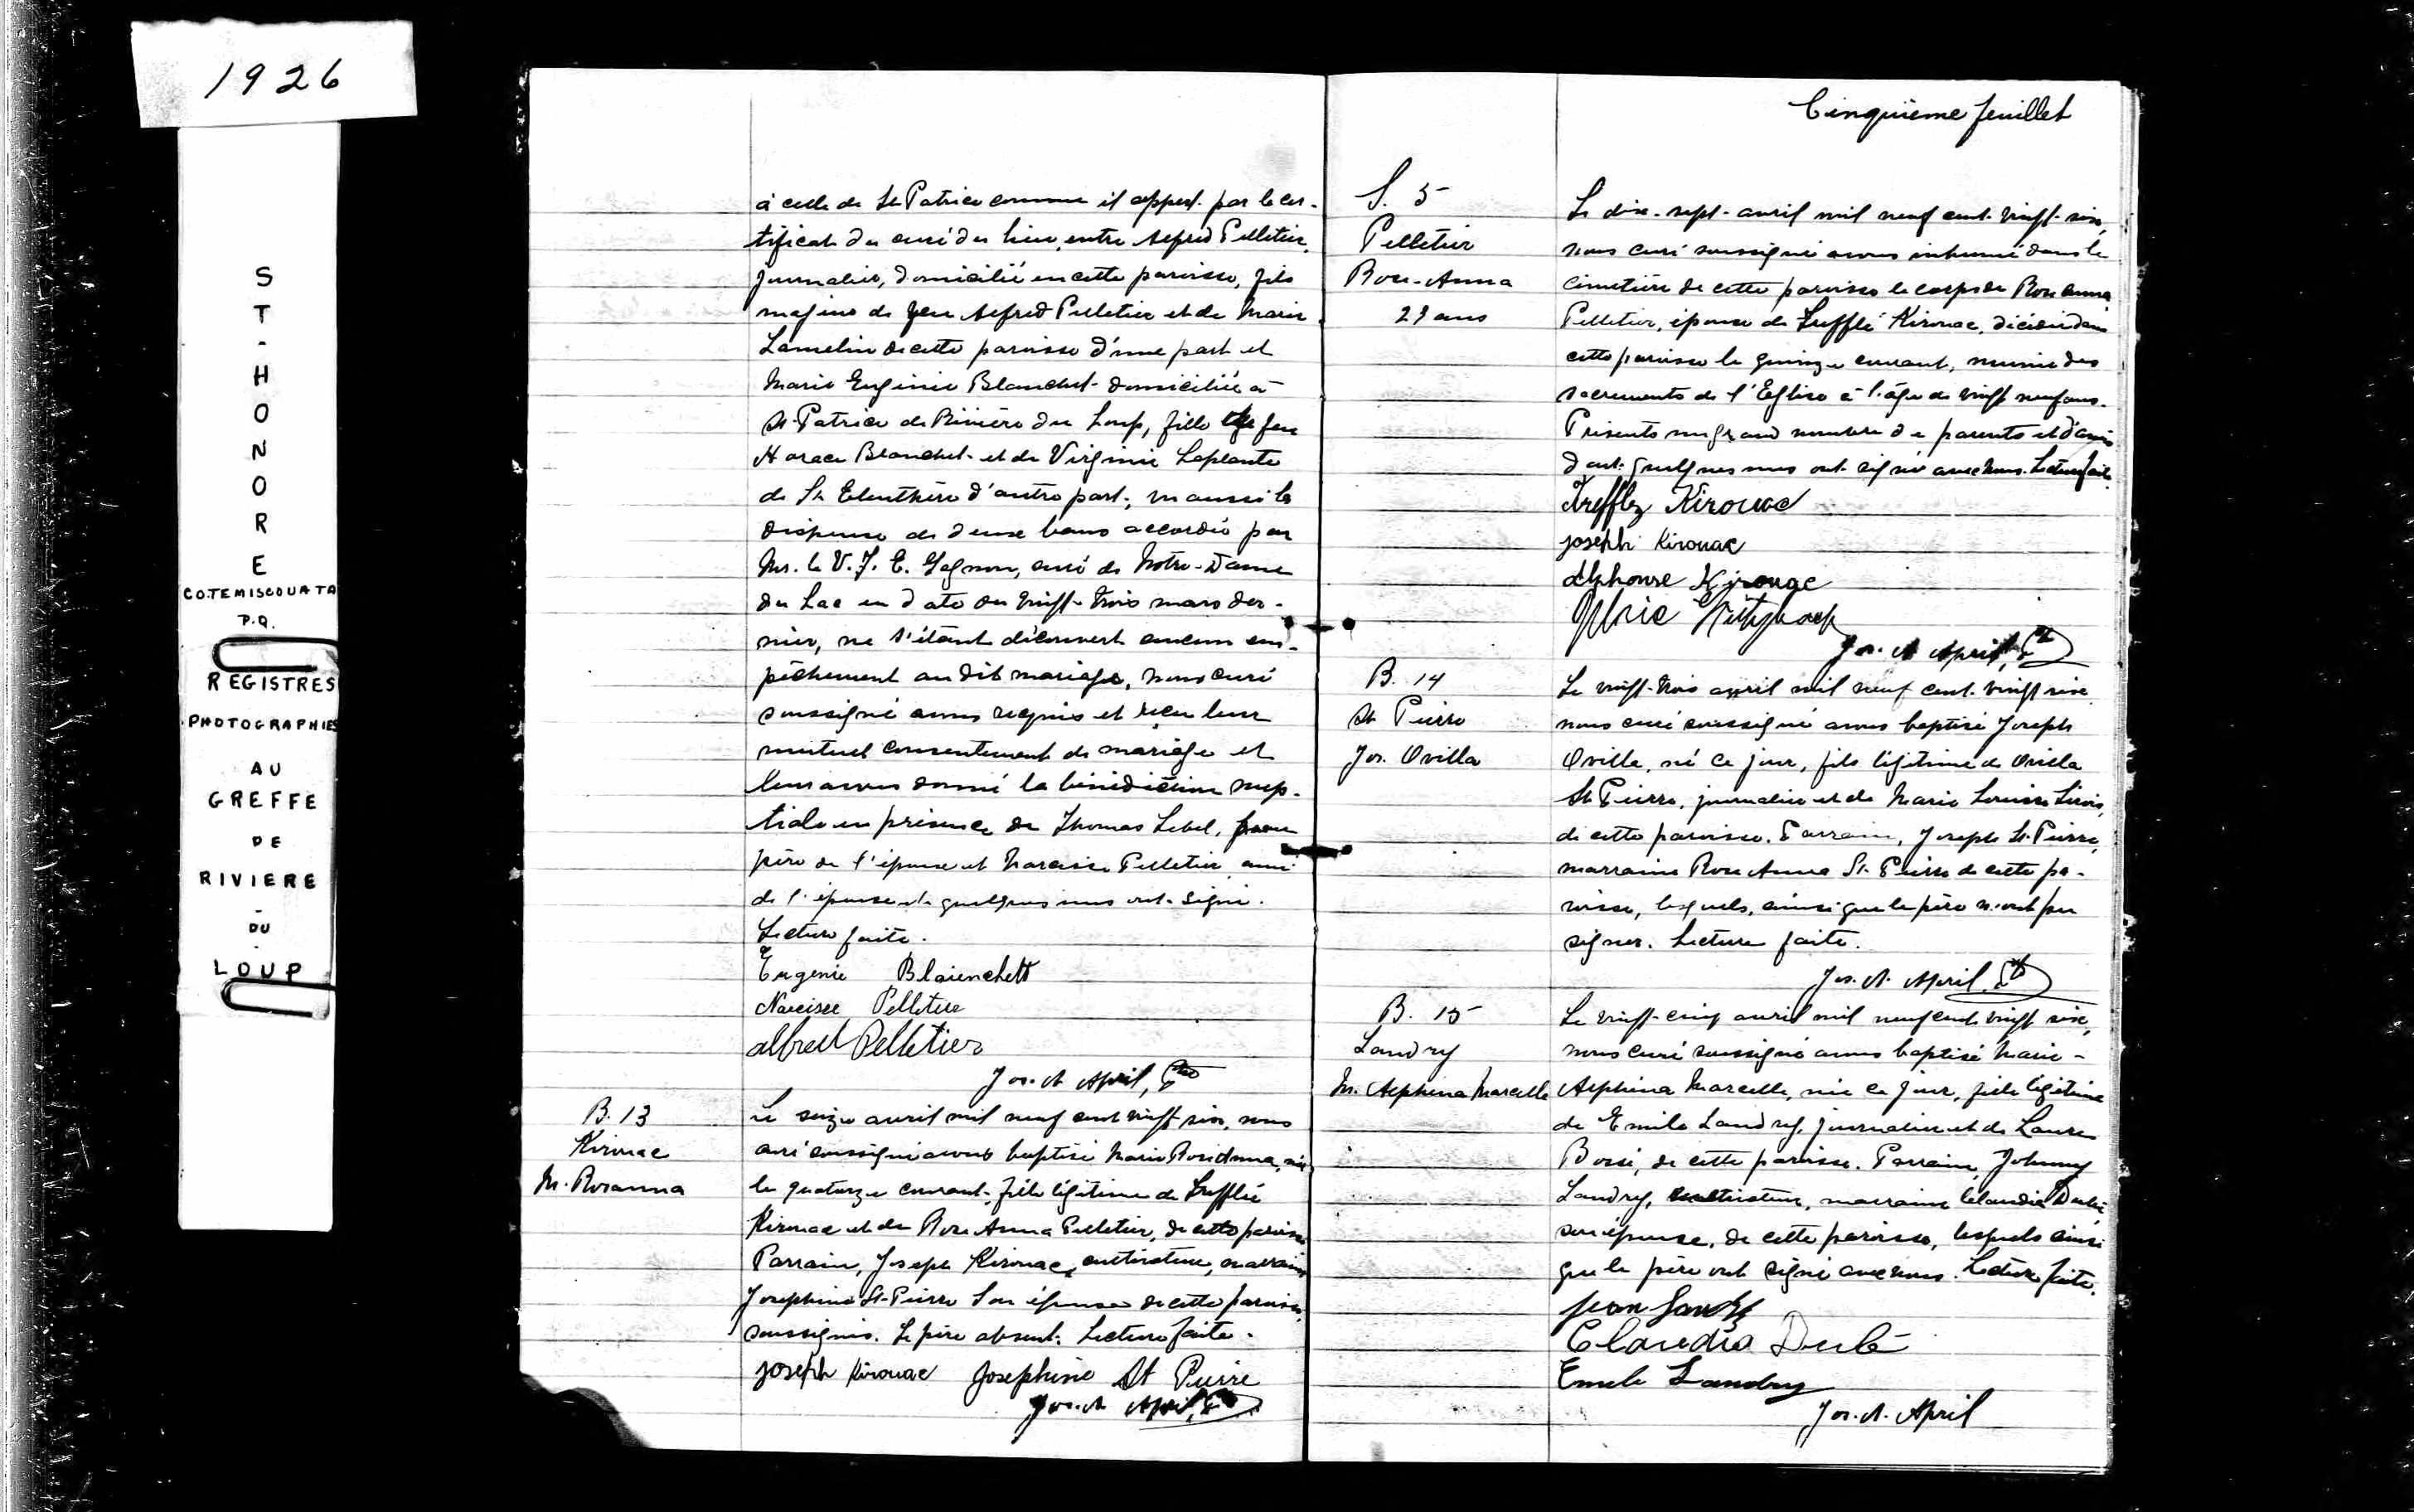 1926
S
T
-
H
O
N
O
R
E
CO.TEMISCOUATA
P.Q.
REGISTRES
PHOTOGRAPHIES
AU
GREFFE
DE
RIVIERE
-
DU
-
LOUP
à celle de St Patrice comme il appert par le cer-
tificat du curé du lieu, entre Alfred Pelletier,
journalier, domicilié en cette paroisse, fils
majeur de feu Alfred Pelletier et de Marie
Lamelin de cette paroisse d'une part et
Marie Eugénie Blanchet domiciliée à
St-Patrice de Rivière du Loup, fille de feu
Horace Blanchet et de Virginie Laplante
de St Eleuthère d'autre part; vu aussi la
dispense de deux bans accordée par
Mr. le V. F. E. Gagnon, curé de Notre-Dame
du Lac en date du vingt-trois mars der-
nier, ne s'étant découvert aucun em-
pêchement au dit mariage, nous curé
soussigné avons requis et reçu leur
mutuel consentement de mariage et
leur avons donné la bénédiction nup-
tiale en présence de Thomas Lebel, beau
père de l'épouse et Narcisse Pelletier ami
de l'épouse et quelques uns ont signé.
Lecture faite.
Eugenie Blaienchett
Narcisse Pelletier
Alfred Pelletier
Jos. A April, Ptre
B. 13
Kirouac
M. Rosanna
Le seize avril mil neuf cent vingt-six, nous
curé soussigné avons baptisé Marie Rosanna, née
le quatorze courant, fille légitime de Trefflé
Kirouac et de Rose Anna Pelletier, de cette paroisse
Parrain, Joseph Kirouac, cultivateur, marraine
Josephine St-Pierre son épouse de cette paroisse,
soussignés. Le père absent. Lecture faite.
Joseph Kirouac Josephine St Pierre
Jos. A April, Ptre
Cinquième feuillet
S. 5
Pelletier
Rose-Anna
29 ans
Le dix-sept avril mil neuf cent vingt-six,
nous curé soussigné avons inhumé dans le
cimetière de cette paroisse le corps de Rose Anna
Pelletier, épouse de Trefflé Kirouac, décédée dans
cette paroisse le quinze courant, munie des
sacrements de l'Eglise à l'âge de vingt neuf ans.
Présents un grand nombre de parents et d'amis
dont quelques uns ont signé avec nous. Lecture faite.
Trefflez Kirouac
Joseph Kirouac
Alphonse Kirouac
Jos. A April, Ptre
B. 14
St Pierre
Jos. Ovilla
Le vingt-trois avril mil neuf cent vingt six
nous curé soussigné avons baptisé Joseph
Ovilla, né ce jour, fils légitime de Ovila
St Pierre, journalier et de Marie Louise Sirois,
de cette paroisse. Parrain, Joseph St. Pierre,
marraine Rose Anna St-Pierre de cette pa-
roisse, lesquels, ainsi que le père n'ont pu
signer. Lecture faite.
Jos. A. April Ptre
B. 15
Landry
M. Alphena Marcelle
Le vingt-cinq avril mil neuf cent vingt six,
nous curé soussigné avons baptisé Marie-
Alphena Marcelle, née ce jour, fille légitime
de Emile Landry, journalier et de Laura
Bossé, de cette paroisse. Parrain, Johnny
Landry, cultivateur, marraine Claudia Dubé
son épouse, de cette paroisse, lesquels ainsi
que le père ont signé avec nous. Lecture faite.
Jean Landry
Claudia Dubé
Emile Landry
Jos. A. April